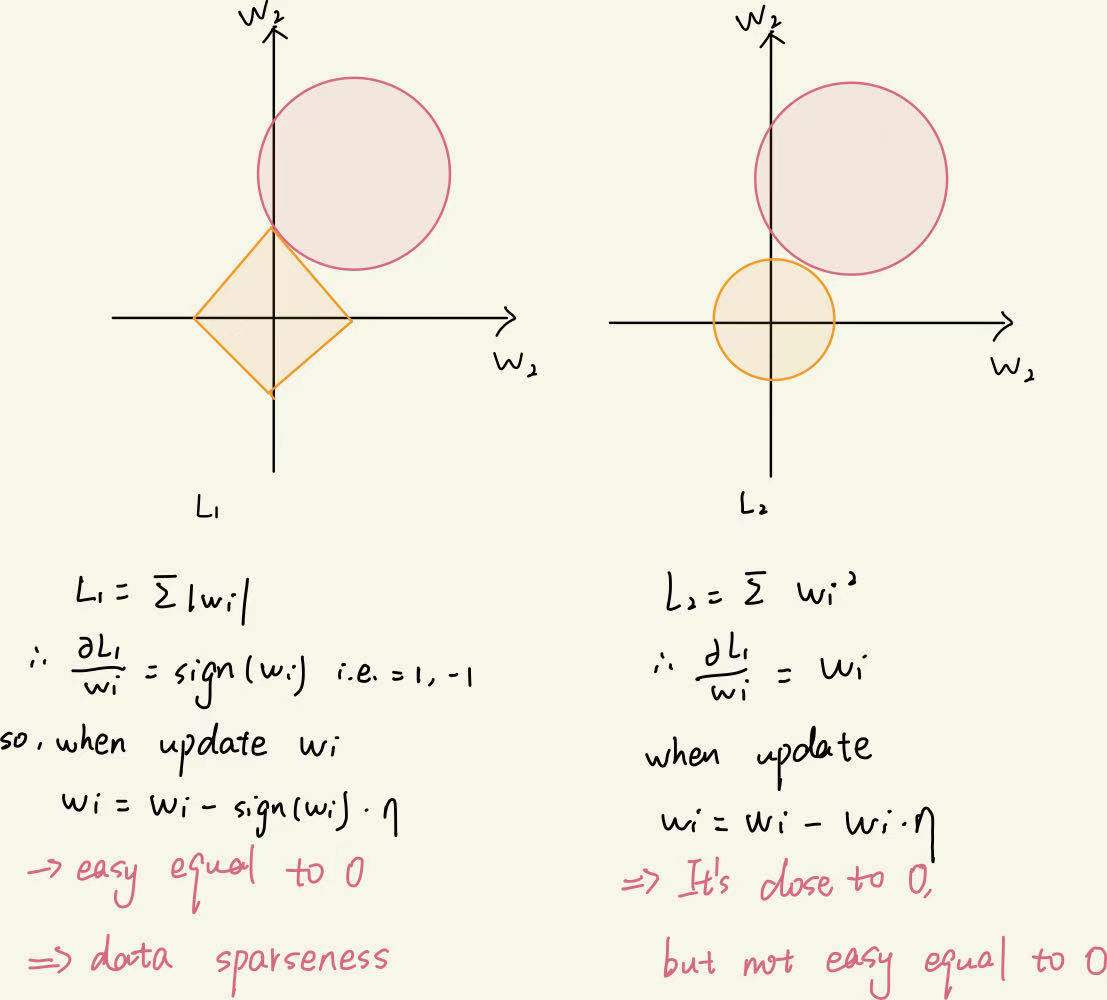 W₂
W₂
L₁
L₁ = Σ |wi|
∴ ∂L₁/wi = sign(wi) i.e. = 1, -1
so, when update wi
wi = wi - sign(wi) · η
→ easy equal to 0
⇒ data sparseness
W₂
W₂
L₂
L₂ = Σ wi²
∴ ∂L₁/wi = wi
when update
wi = wi - wi · η
⇒ It's close to 0,
but not easy equal to 0